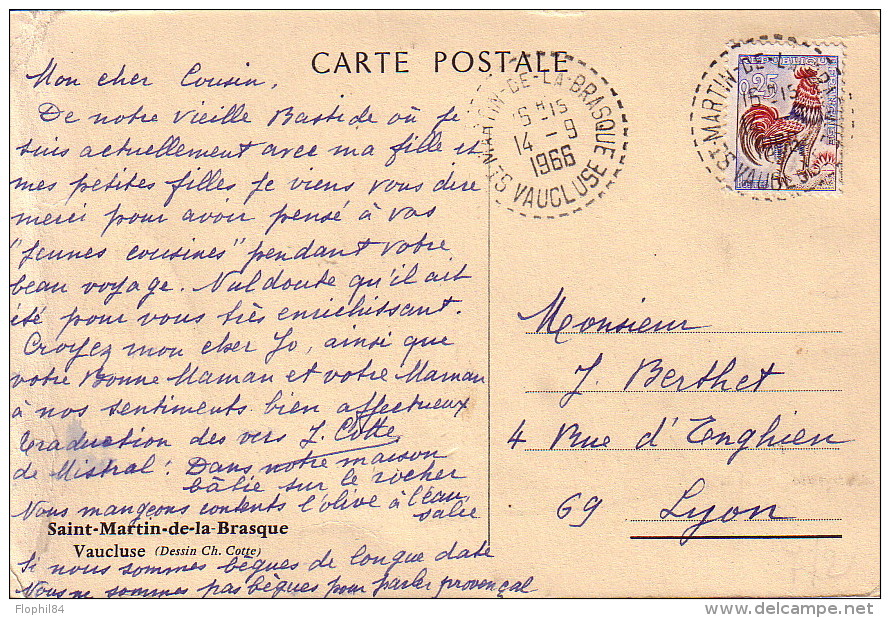 CARTE POSTALE
Mon cher Cousin,
De notre vieille Bastide où je
suis actuellement avec ma fille et
mes petites filles je viens vous dire
merci pour avoir pensé à vos
"jeunes cousines" pendant votre
beau voyage. Nul doute qu'il ait
été pour vous très enrichissant.
Croyez mon cher Jo, ainsi que
votre Bonne Maman et votre Maman
à nos sentiments bien affectueux
J. Cotte
Traduction des vers
de Mistral : Dans notre maison
bâtie sur le rocher
Nous mangeons contents l'olive à l'eau
salée
Saint-Martin-de-la-Brasque
Vaucluse (Dessin Ch. Cotte)
Si nous sommes bègues de longue date
Nous ne sommes pas bègues pour parler provençal
ST MARTIN-DE-LA-BRASQUE
15 H 15
14 - 9
1966
VAUCLUSE
0,25
ST MARTIN-DE-LA-BRASQUE
VAUCLUSE
Monsieur
J. Berthet
4 Rue d'Enghien
69 Lyon
Flophil84
delcampe.net